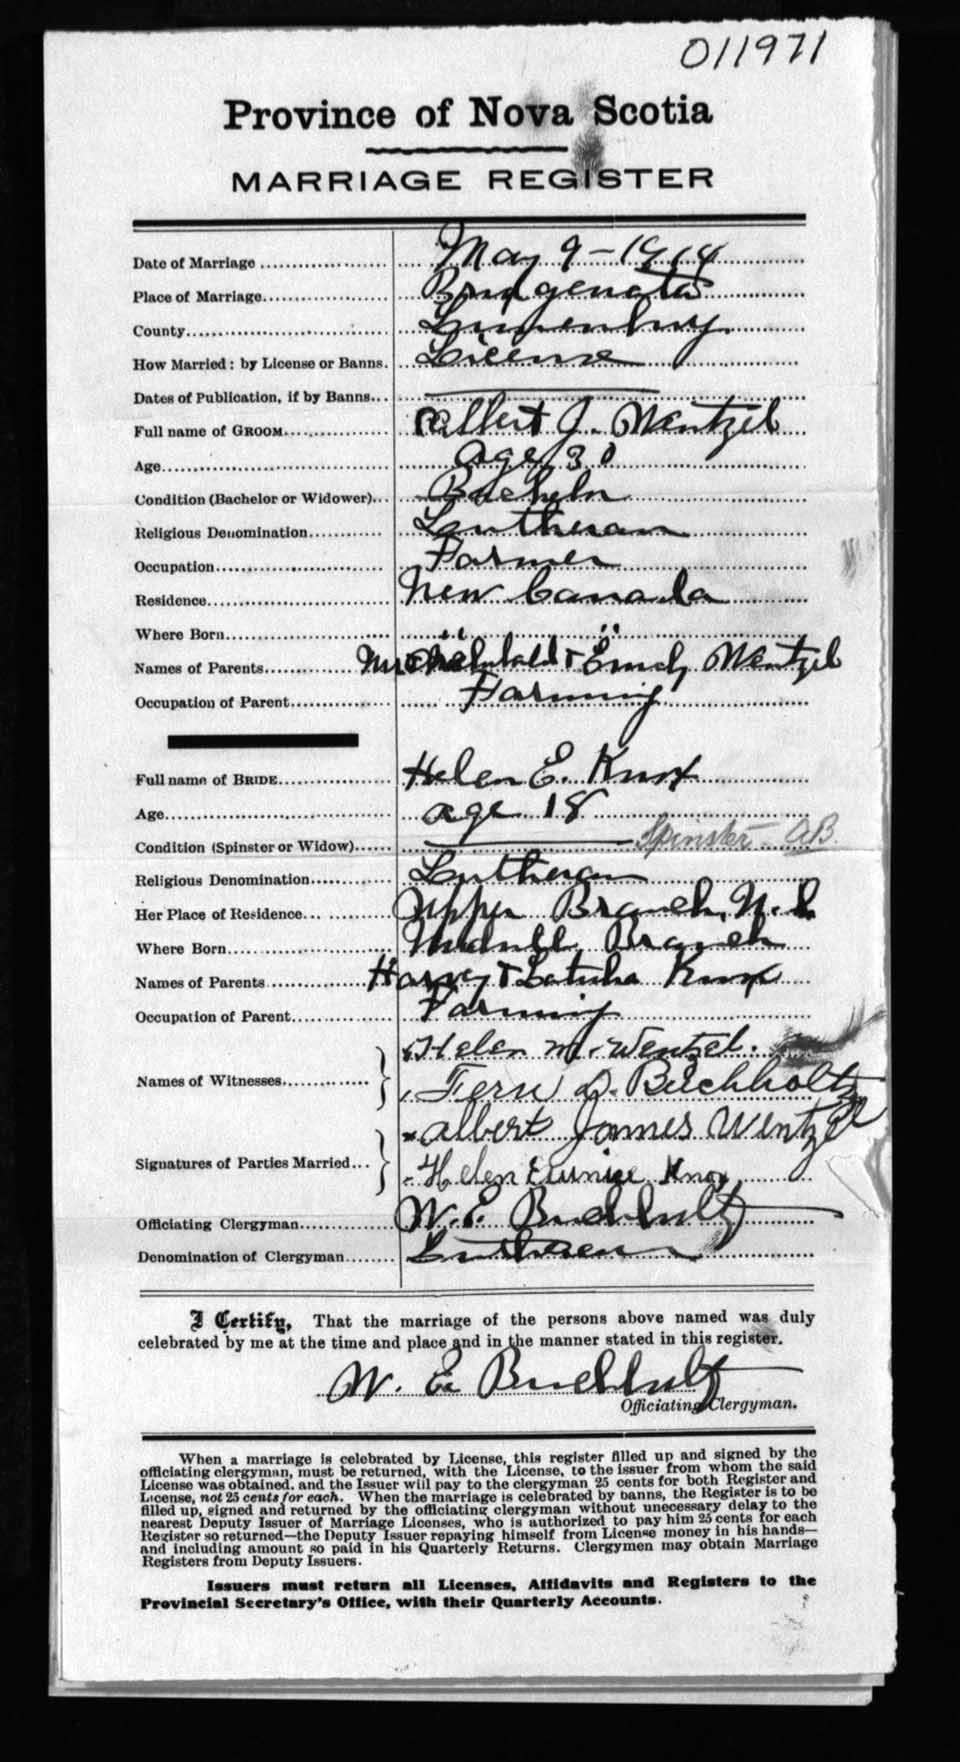 011971
Province of Nova Scotia
MARRIAGE REGISTER
Date of Marriage May 9 - 1914
Place of Marriage Bridgewater
County Lunenburg
How Married: by License or Banns. License
Dates of Publication, if by Banns
Full name of GROOM Albert J. Wentzel
Age age 30
Condition (Bachelor or Widower) Bachelor
Religious Denomination Lutheran
Occupation Farmer
Residence New Canada
Where Born " "
Names of Parents Archibald + Wentzel
Occupation of Parent Farming
Full name of BRIDE Helen E. Knox
Age age 18
Condition (Spinster or Widow) Spinster - AB.
Religious Denomination Lutheran
Her Place of Residence Upper Branch, N.S.
Where Born Branch
Names of Parents Harvey + Knox
Occupation of Parent Farming
Helen M. Wentzel.
Names of Witnesses Fern D. Buchholtz
Albert James Wentzel
Signatures of Parties Married Helen Eunice Knox
Officiating Clergyman W. E. Buchholtz
Denomination of Clergyman Lutheran
I Certify, That the marriage of the persons above named was duly
celebrated by me at the time and place and in the manner stated in this register.
W. E. Buchholtz
Officiating Clergyman.
When a marriage is celebrated by License, this register filled up and signed by the
officiating clergyman, must be returned, with the License, to the issuer from whom the said
License was obtained, and the Issuer will pay to the clergyman 25 cents for both Register and
License, not 25 cents for each. When the marriage is celebrated by banns, the Register is to be
filled up, signed and returned by the officiating clergyman without unnecessary delay to the
nearest Deputy Issuer of Marriage Licenses, who is authorized to pay him 25 cents for each
Register so returned—the Deputy Issuer repaying himself from License money in his hands—
and including amount so paid in his Quarterly Returns. Clergymen may obtain Marriage
Registers from Deputy Issuers.
Issuers must return all Licenses, Affidavits and Registers to the
Provincial Secretary's Office, with their Quarterly Accounts.